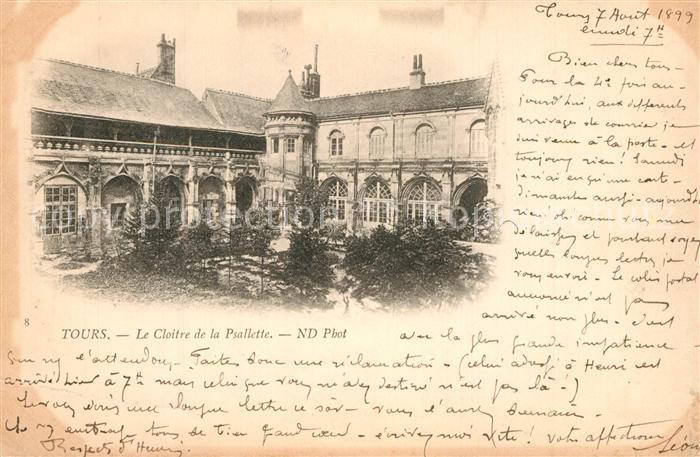 Tours 7 Août 1899
lundi 7h
Bien chers tous -
Pour la 4e fois au-
jourd'hui, aux différents
arrivages de courrier je
suis venu à la porte - et
toujours rien! Samedi
je n'ai eu qu'une carte -
dimanche aussi - aujourd'hui
rien. oh comme vous me
délaissez et pourtant voyez
quelles longues lettres je
vous envoie - Le colis postal
annoncé n'est pas
arrivé non plus - c'est
8
TOURS. — Le Cloître de la Psallette. — ND Phot
avec la plus grande impatience -
que j'y m'attendais - Faites donc une réclamation - (celui adressé à Henri est
arrivé hier à 7h mais celui que vous m'avez destiné n'est pas là -)
Je vous écris une longue lettre ce soir - vous l'aurez demain -
Je vous embrasse tous de bien grand cœur - écrivez moi vite! votre affectionné Léon
Respects d'Henri